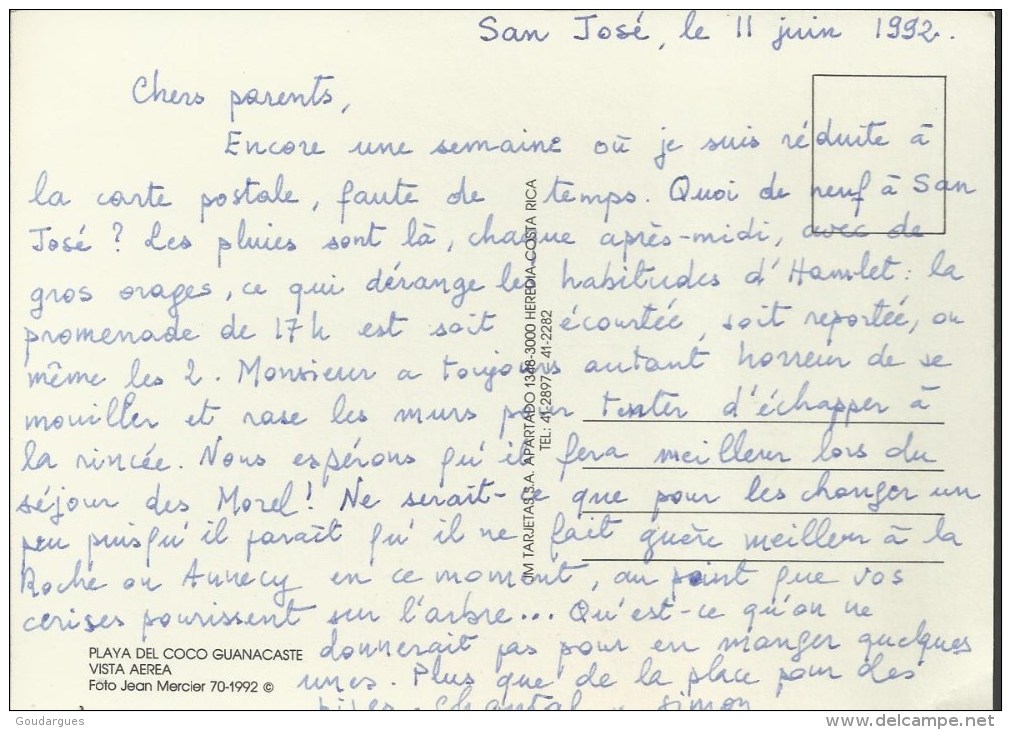 San José, le 11 juin 1992.
Chers parents,
Encore une semaine où je suis réduite à
la carte postale, faute de temps. Quoi de neuf à San
José ? Les pluies sont là, chaque après-midi, avec de
gros orages, ce qui dérange les habitudes d'Hamlet : la
promenade de 17h est soit écourtée, soit reportée, ou
même les 2. Monsieur a toujours autant horreur de se
mouiller et rase les murs pour tenter d'échapper à
la rincée. Nous espérons qu'il fera meilleur lors du
séjour des Morel ! Ne serait-ce que pour les changer un
peu puisqu'il paraît qu'il ne fait guère meilleur à la
Roche ou Annecy en ce moment, au point que vos
cerises pourissent sur l'arbre... Qu'est-ce qu'on ne
donnerait pas pour en manger quelques
unes. Plus que de la place pour des
Chantal Simon
JM TARJETAS S.A. APARTADO 1348-3000 HEREDIA-COSTA RICA
TEL: 41-2897 - 41-2282
PLAYA DEL COCO GUANACASTE
VISTA AEREA
Foto Jean Mercier 70-1992 ©
Goudargues
www.delcampe.net